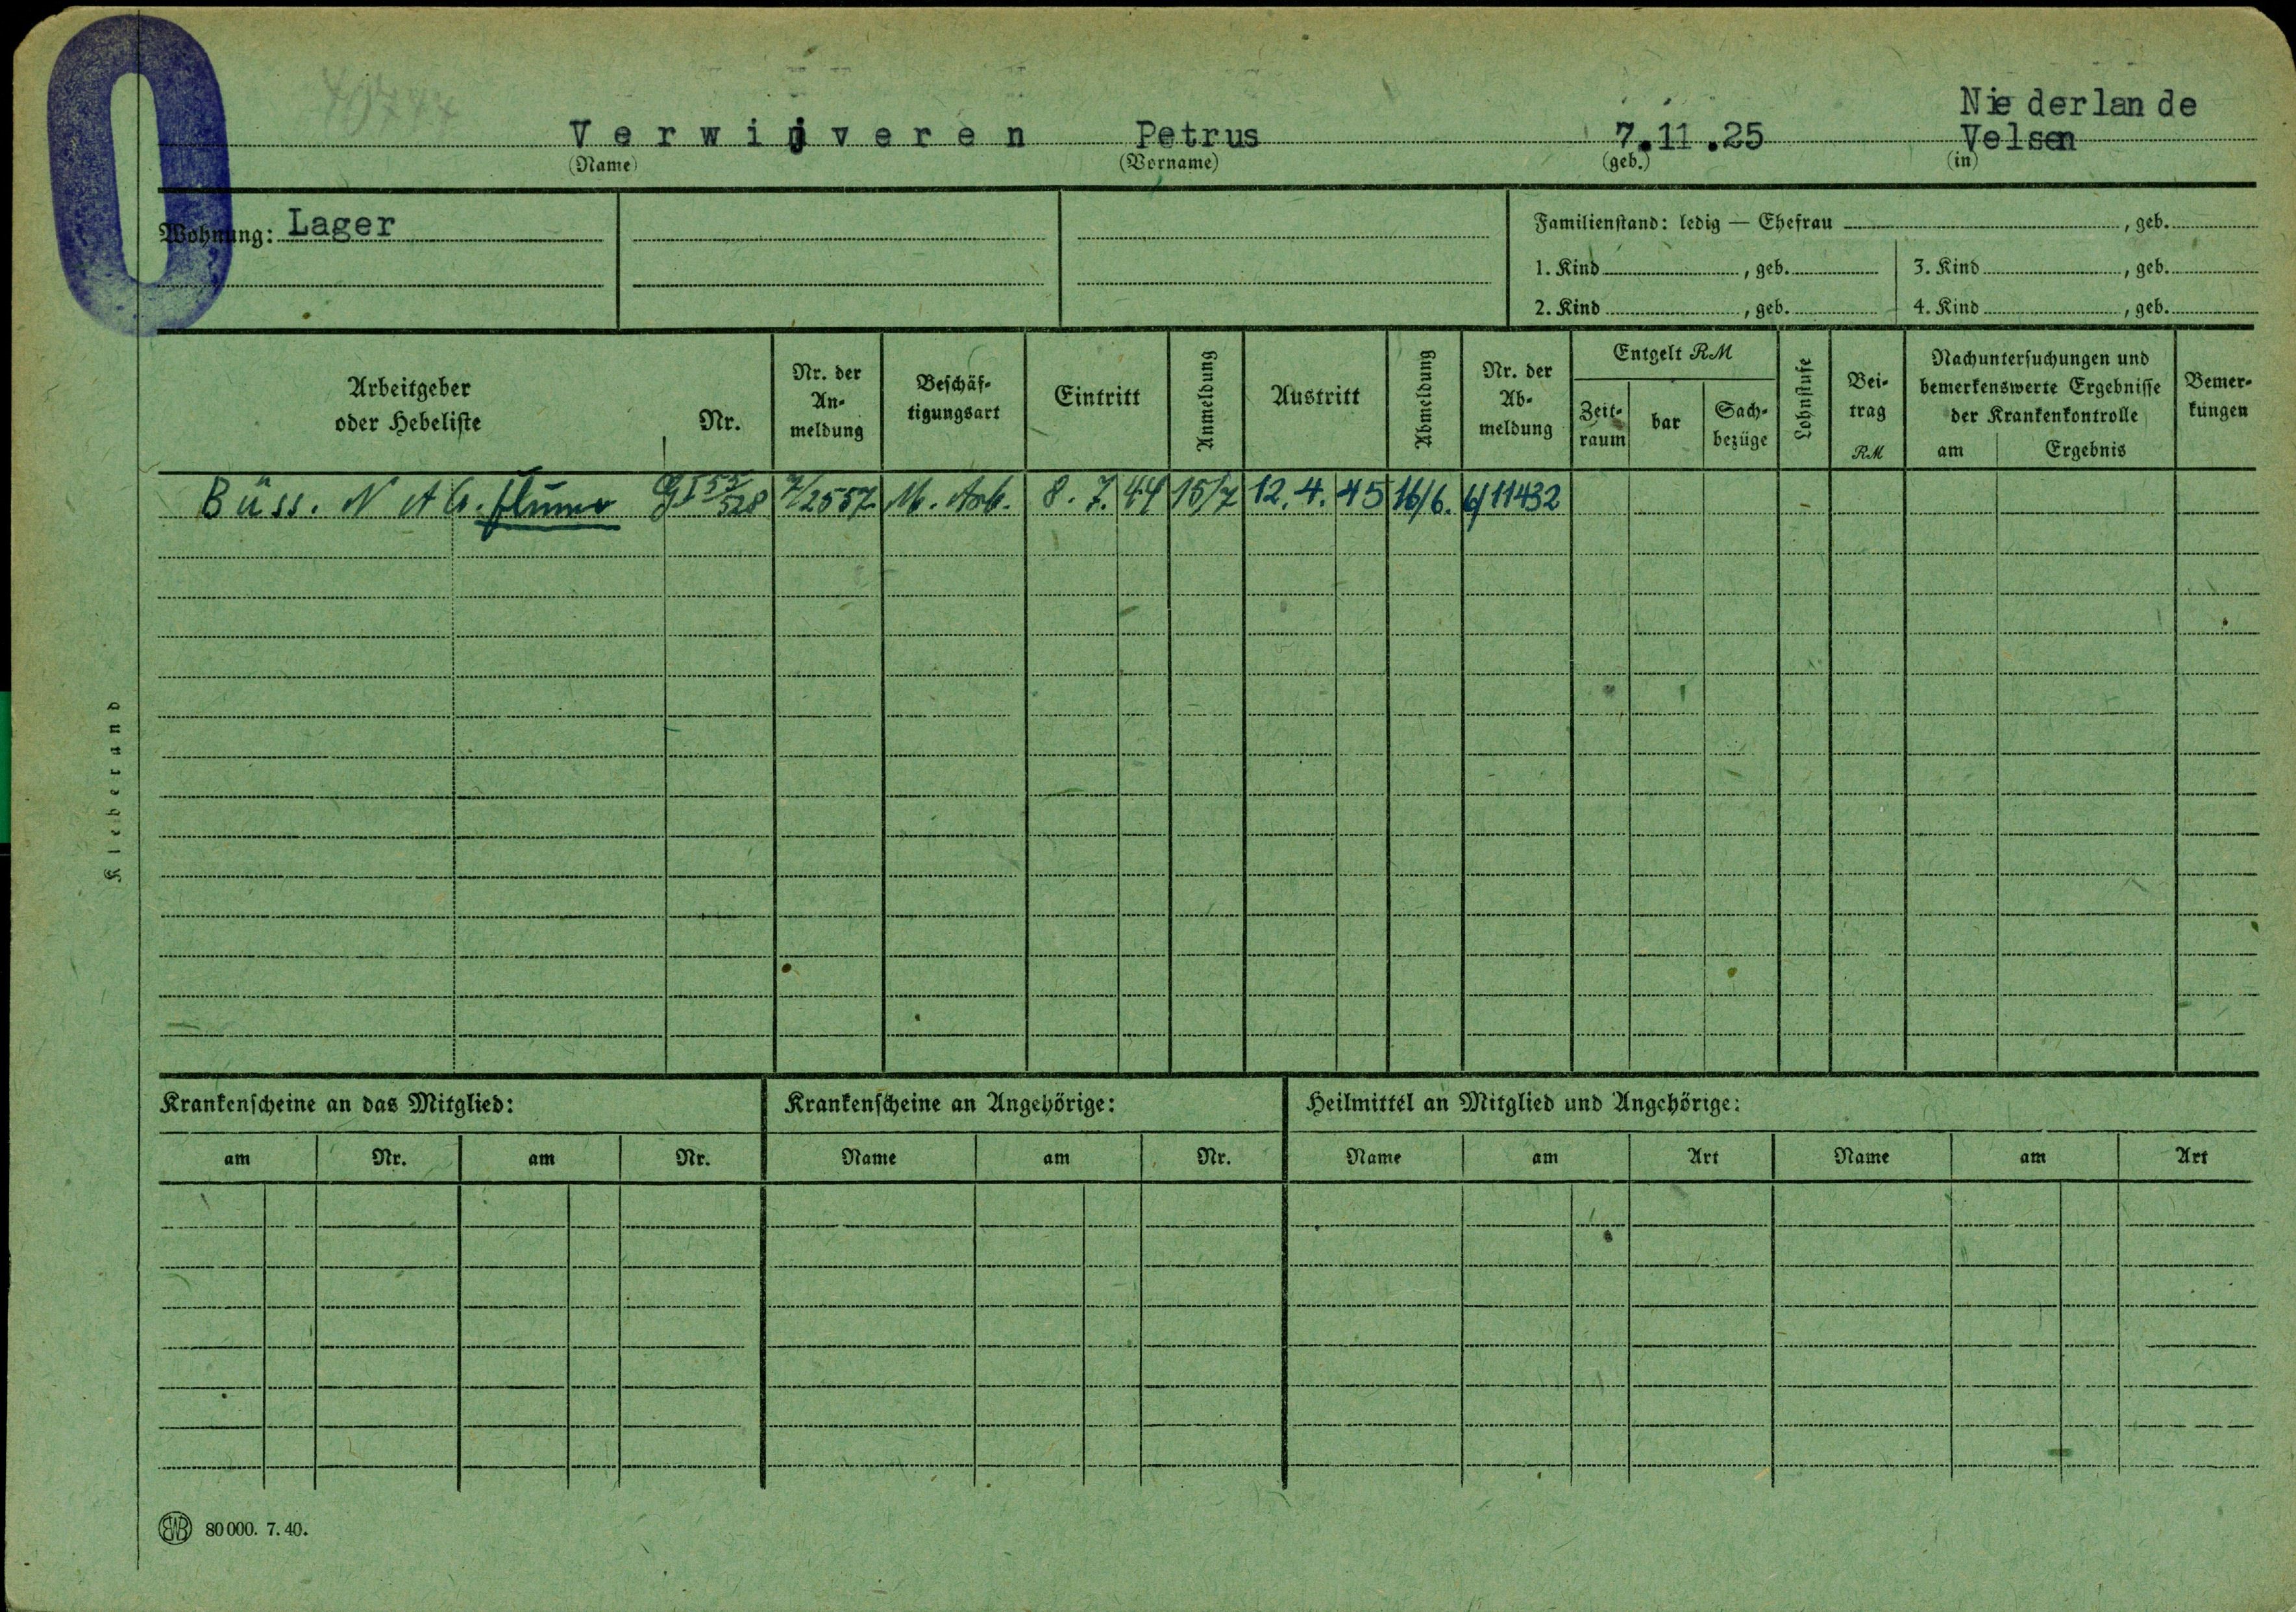 O
Niederlande
Verwijveren Petrus 7.11.25 Velsen
(Name) (Vorname) (geb.) (in)
Wohnung: Lager
Familienstand: ledig — Ehefrau , geb.
1. Kind , geb. 3. Kind , geb.
2. Kind , geb. 4. Kind , geb.
Arbeitgeber oder Hebeliste Nr.
Nr. der An-meldung
Beschäf-tigungsart
Eintritt
Anmeldung
Austritt
Abmeldung
Nr. der Ab-meldung
Entgelt RM
Zeit-raum bar Sach-bezüge
Lohnstufe
Bei-trag RM
Nachuntersuchungen und bemerkenswerte Ergebnisse der Krankenkontrolle
am Ergebnis
Bemer-kungen
Büss. N A G. 7/2557 M. Arb. 8. 7. 44 15/7 12. 4. 45 16/6. 6/11432
Kleberand
Krankenscheine an das Mitglied: Krankenscheine an Angehörige: Heilmittel an Mitglied und Angehörige:
am Nr. am Nr. Name am Nr. Name am Art Name am Art
EWB 80 000. 7. 40.